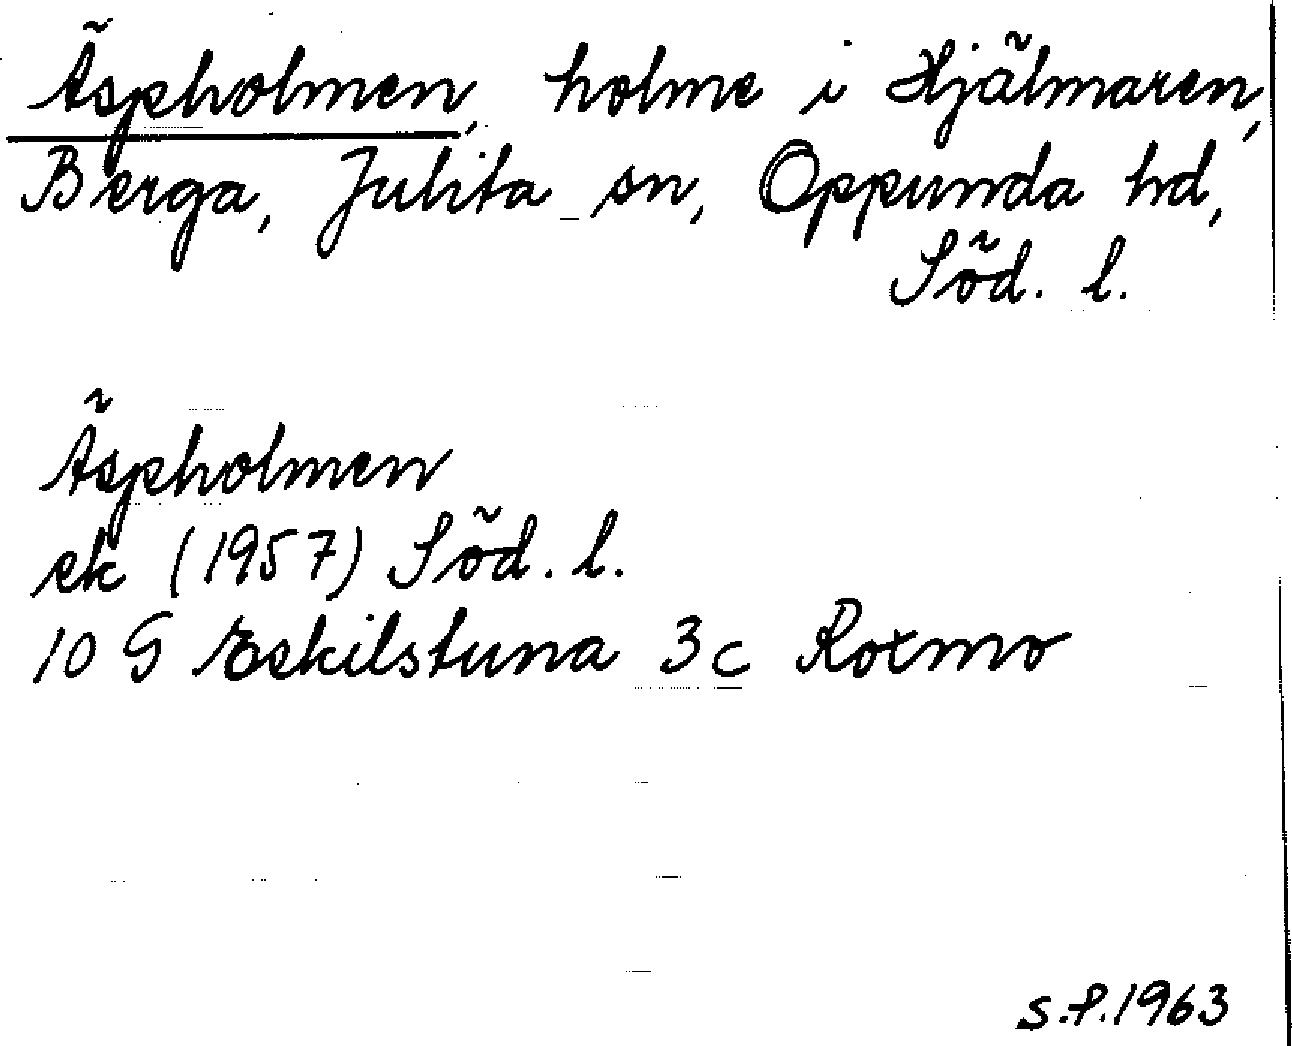 Äspholmen, holme i Hjälmaren,
Berga, Julita sn, Oppunda hd,
Söd. l.
Äspholmen
ek (1957) Söd. l.
10 G Eskilstuna 3c Roxmo
S.P.1963